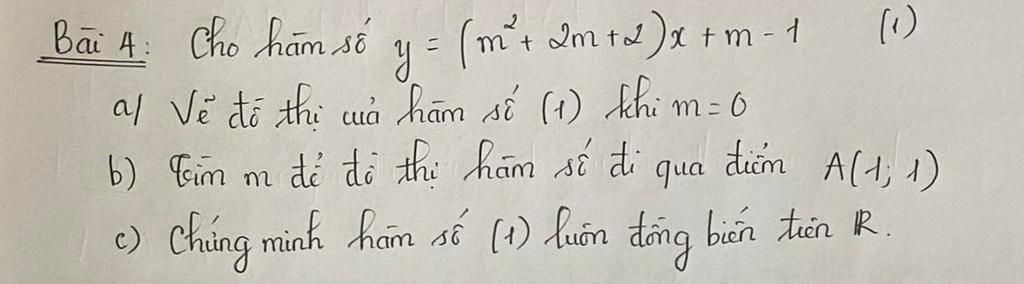 Bài 4: Cho hàm số y = (m² + 2m + 2)x + m - 1 (1)
a/ Vẽ đồ thị của hàm số (1) khi m = 0
b) Tìm m để đồ thị hàm số đi qua điểm A(1; 1)
c) Chứng minh hàm số (1) luôn đồng biến trên ℝ.